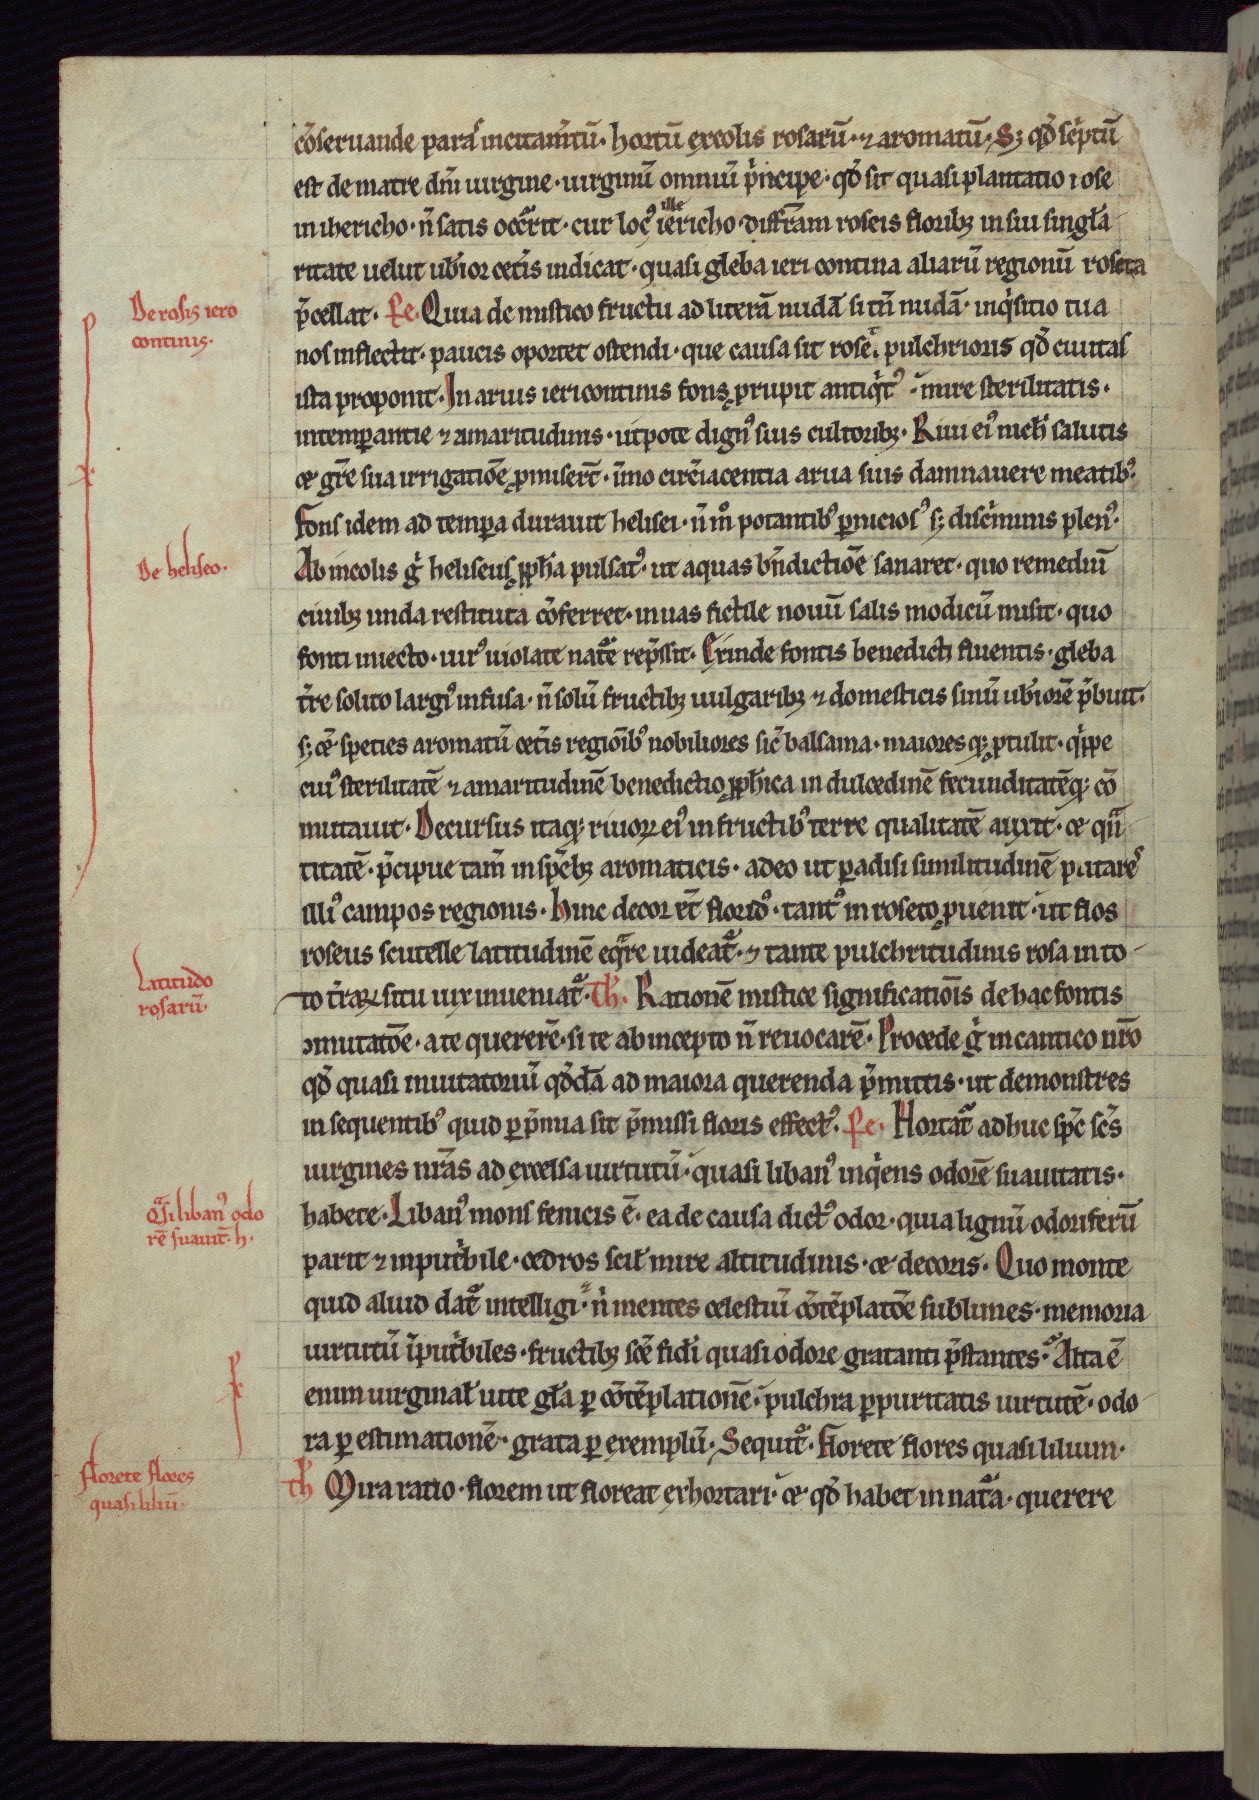 c̄oseruande paras incitam̄tū· hortū excolis rosarū· ⁊ aromatū· Sꝫ qd̄ sc̄ptū
est de matre dn̄i uirgine· uirginū omniū p̄ncipe· qd̄ sit quasi plantatio rose
in ihericho· n̄ satis occ̄rit· cur locꝰ ille iericho· diffr̄am roseis floribꝫ in sui singla
ritate uelut ub̄ior cet̄is indicat· quasi gleba ieri contina aliarū regionū roseta
p̄cellat· Pe· Quia de mistico fructu ad literā nudā si tn̄ nudā· inq̇sitio tua
nos inflectit· paucis oportet ostendi· que causa sit rose pulchrioris qd̄ ciuitas
ista proponit· In aruis iericontinis fons ꝓrupit antiq̇tꝰ mire sterilitatis·
intemꝑantie ⁊ amaritudinis· utpote dignꝰ suis cultoribꝫ· Riui eiꝰ nich̄ salutis
ex gr̄e sua irrigatiōe ꝓmiser̄t· īmo circ̄iacentia arua suis damnauere meatibꝰ·
Fons idem ad temꝑa durauit helisei· n̄ m̊ potantibꝰ ꝑniciosꝰ sꝫ disc̄minis plenꝰ·
Ab incolis ḡ heliseus ꝓph̄a pulsatꝰ· ut aquas bn̄dictiōe sanaret· quo remediū
ciuibꝫ unda restituta c̄oferret· in uas fictile nouū salis modicū misit· quo
fonti iniecto· uirꝰ uiolate nat̄e rep̄ssit· Exinde fontis benedicti fluentis· gleba
t̄re solito largiꝰ infusa· n̄ solū fructibꝫ uulgaribꝫ ⁊ domesticis sinū ub̄iorē p̄buit·
sꝫ ex̄ species aromatū cet̄is regiōibꝰ nobiliores sic̄ balsama· maiores qꝫ ꝓtulit· q̇ppe
cuiꝰ sterilitatē ⁊ amaritudinē benedictio ꝓph̄ica in dulcedinē fecunditatēqꝫ c̄o
mutauit· Decursus itaqꝫ riuoꝝ eiꝰ in fructibꝰ terre qualitatē auxit· et qn̄
titatē· p̄cipue tam̄ in spc̄ebꝫ aromaticis· adeo ut paradisi similitudinē putares
illiꝰ campos regionis· Hinc decor et̄ floridꝰ· tantꝰ in roseto ꝓuenit· ut flos
roseus scutelle latitudinē eq̄re uideat̄· ⁊ tante pulchritudinis rosa in to-
to t̄raꝝ situ uix inueniat̄· Th̄· Rationē mistice significatiōis de hac fontis
ꝯmutatōe· a te quererē· si te ab incepto n̄ reuocarē· Procede ḡ in cantico nr̄o
qd̄ quasi inuitatoriū qd̄dā ad maiora querenda p̄mittis· ut demonstres
in sequentibꝰ quid ꝑ p̄mia sit p̄missi floris effectꝰ· Pe· Hortat̄ adhuc spc̄ sc̄s
uirgines nr̄as ad excelsa uirtutū· quasi libanꝰ inq̇ens odorē suauitatis·
habete· Libanꝰ mons fenicis ē· ea de causa dictꝰ odor· quia lignū odoriferū
parit ⁊ inputr̄bile· cedros scil̄ mire altitudinis· et decoris· Quo monte
quid aliud dat̄ intelligi· n̄ mentes celestiū c̄otēplatōe sublimes· memoria
uirtutū īputr̄biles· fructibꝫ sc̄e fidei quasi odore gratanti p̄stantes· Alta ē
enim uirginal̄ uite gl̄a ꝑ c̄otēplationē· pulchra ꝑ puritatis uirtutē· odo-
ra ꝑ estimationē· grata ꝑ exemplū· Sequit̄· Florete flores quasi lilium·
Th̄ Mira ratio· florem ut floreat exhortari· et qd̄ habet in nat̄a· querere
De rosis iero
continis·
De heliseo·
Latitudo
rosarū·
Q̄si libanꝰ odo
rē suauit̄· h·
florete flores
quasi liliū·